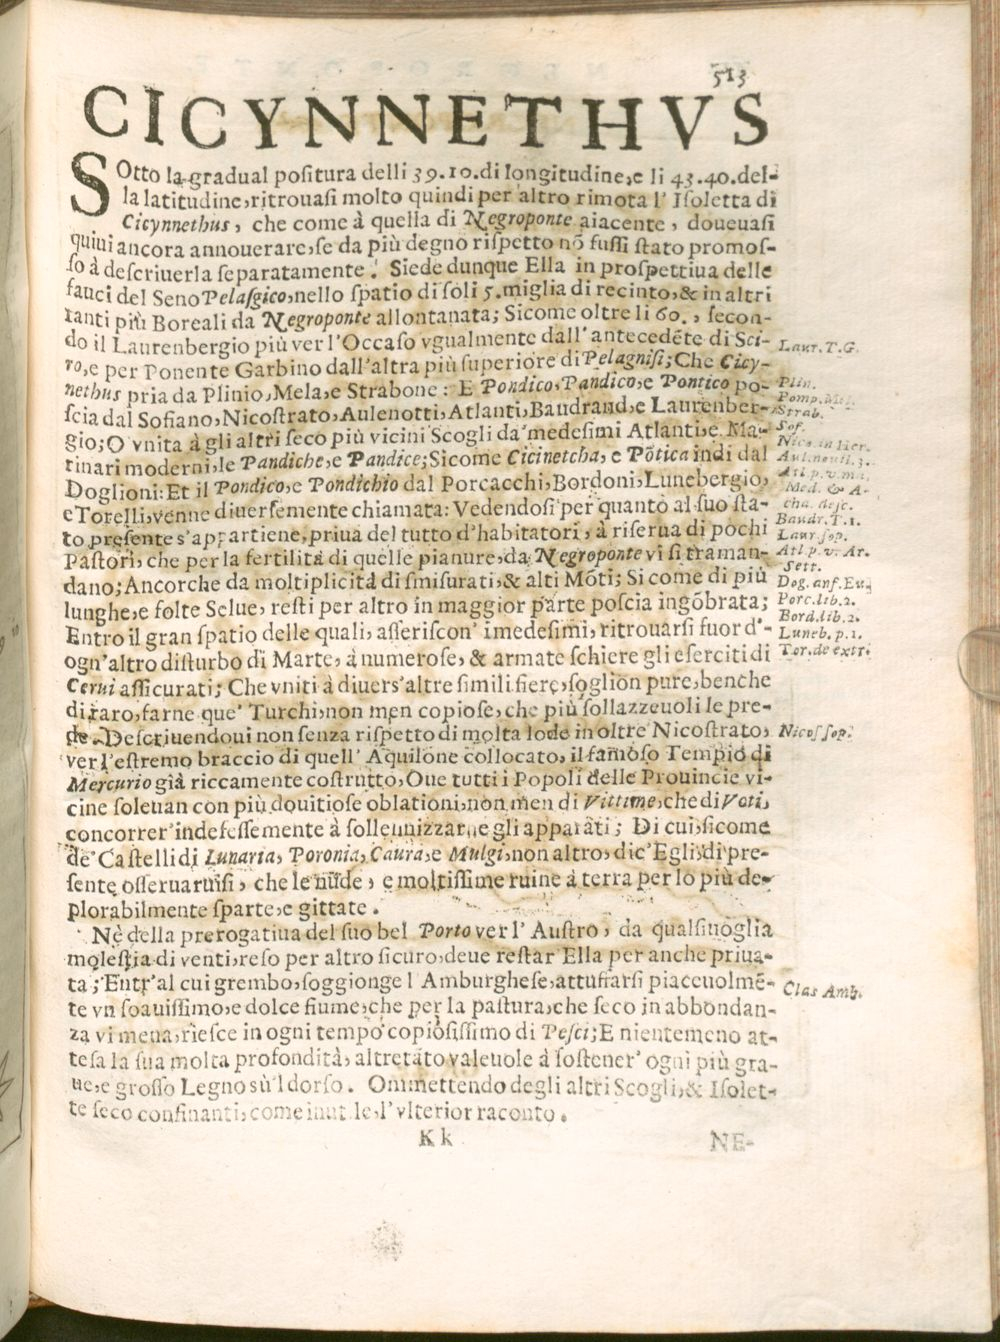 513
CICYNNETHVS
SOtto la gradual positura delli 39.10.di longitudine,e li 43.40.del-
la latitudine,ritrouasi molto quindi per altro rimota l' Isoletta di
Cicynnethus, che come à quella di Negroponte aiacente, doueuasi
quiui ancora annouerare,se da più degno rispetto nō fussi stato promos-
so à descriuerla separatamente. Siede dunque Ella in prospettiua delle
fauci del Seno Pelasgico,nello spatio di soli 5.miglia di recinto,& in altri
tanti più Boreali da Negroponte allontanata; Sicome oltre li 60., secon-
do il Laurenbergio più ver l'Occaso vgualmente dall' antecedēte di Sci-
ro,e per Ponente Garbino dall'altra più superiore di Pelagnisi;Che Cicy-
nethus pria da Plinio,Mela,e Strabone: E Pondico,Pandico,e Pontico po-
scia dal Sofiano,Nicostrato,Aulenotti,Atlanti,Baudrand,e Laurenber-
gio;O vnita à gli altri seco più vicini Scogli da' medesimi Atlanti,e Ma-
rinari moderni,le Pandiche,e Pandice;Sicome Cicinetcha,e Pōtica indi dal
Doglioni:Et il Pondico,e Pondichio dal Porcacchi,Bordoni,Lunebergio,
e Torelli,venne diuersemente chiamata: Vedendosi per quanto al suo sta-
to presente s'appartiene,priua del tutto d'habitatori, à riserua di pochi
Pastori,che per la fertilità di quelle pianure,da Negroponte vi si traman-
dano;Ancorche da moltiplicità di smisurati,& alti Mōti; Si come di più
lunghe,e folte Selue, resti per altro in maggior parte poscia ingōbrata;
Entro il gran spatio delle quali, asseriscon' i medesimi, ritrouarsi fuor d'-
ogn'altro disturbo di Marte, à numerose, & armate schiere gli eserciti di
Cerui assicurati; Che vniti à diuers'altre simili fiere,soglion pure,benche
di raro,farne que' Turchi,non men copiose,che più sollazzeuoli le pre-
de. Descriuendoui non senza rispetto di molta lode in oltre Nicostrato,
ver l'estremo braccio di quell' Aquilone collocato, il famoso Tempio di
Mercurio già riccamente costrutto,Oue tutti i Popoli delle Prouincie vi-
cine soleuan con più douitiose oblationi,non men di Vittime,che di Voti,
concorrer'indefessemente à sollennizzarne gli apparati; Di cui,sicome
de' Castelli di Lunaria, Poronia, Caura,e Mulgi,non altro, dic' Egli,di pre-
sente osseruaruisi, che le nude, e moltissime ruine à terra per lo più de-
plorabilmente sparte,e gittate.
Nè della prerogatiua del suo bel Porto ver l' Austro, da qualsiuoglia
molestia di venti,reso per altro sicuro,deue restar Ella per anche priua-
ta; Entr'al cui grembo,soggionge l Amburghese,attuffarsi piaceuolmē-
te vn soauissimo,e dolce fiume,che per la pastura,che seco in abbondan-
za vi mena,riesce in ogni tempo copiosissimo di Pesci;E nientemeno at-
tesa la sua molta profondità, altretāto valeuole à sostener' ogni più gra-
ue,e grosso Legno sù'l dorso. Ommettendo degli altri Scogli,& Isolet-
te seco confinanti,come inutile,l'vlterior raconto.
Kk
NE-
Laur.T.G.
Plin.
Pomp.Mel.
Strab.
Sof.
Nico in Her.
Aul.nouti.3.
Atl.p.v.ma.
Med. & A-
cha. desc.
Baudr.T.1.
Laur.sop.
Atl.p.v.Ar.
Sett.
Dog.anf.Eu.
Porc.lib.2.
Bord.lib.2.
Luneb.p.1.
Tor.de extr.
Nicos sop.
Clas Amb.